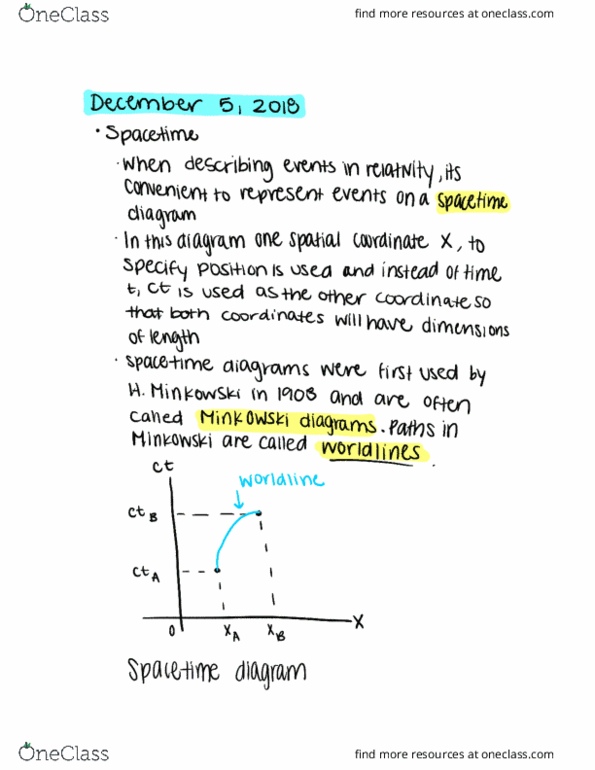 OneClass
find more resources at oneclass.com
December 5, 2018
• Spacetime
· When describing events in relativity, its
convenient to represent events on a spacetime
diagram
· In this diagram one spatial coordinate x, to
specify position is used and instead of time
t, ct is used as the other coordinate so
that both coordinates will have dimensions
of length
· Spacetime diagrams were first used by
H. Minkowski in 1908 and are often
called Minkowski diagrams. Paths in
Minkowski are called worldlines.
ct
worldline
ct B
ct A
0
x A
x B
x
Spacetime diagram
OneClass
find more resources at oneclass.com